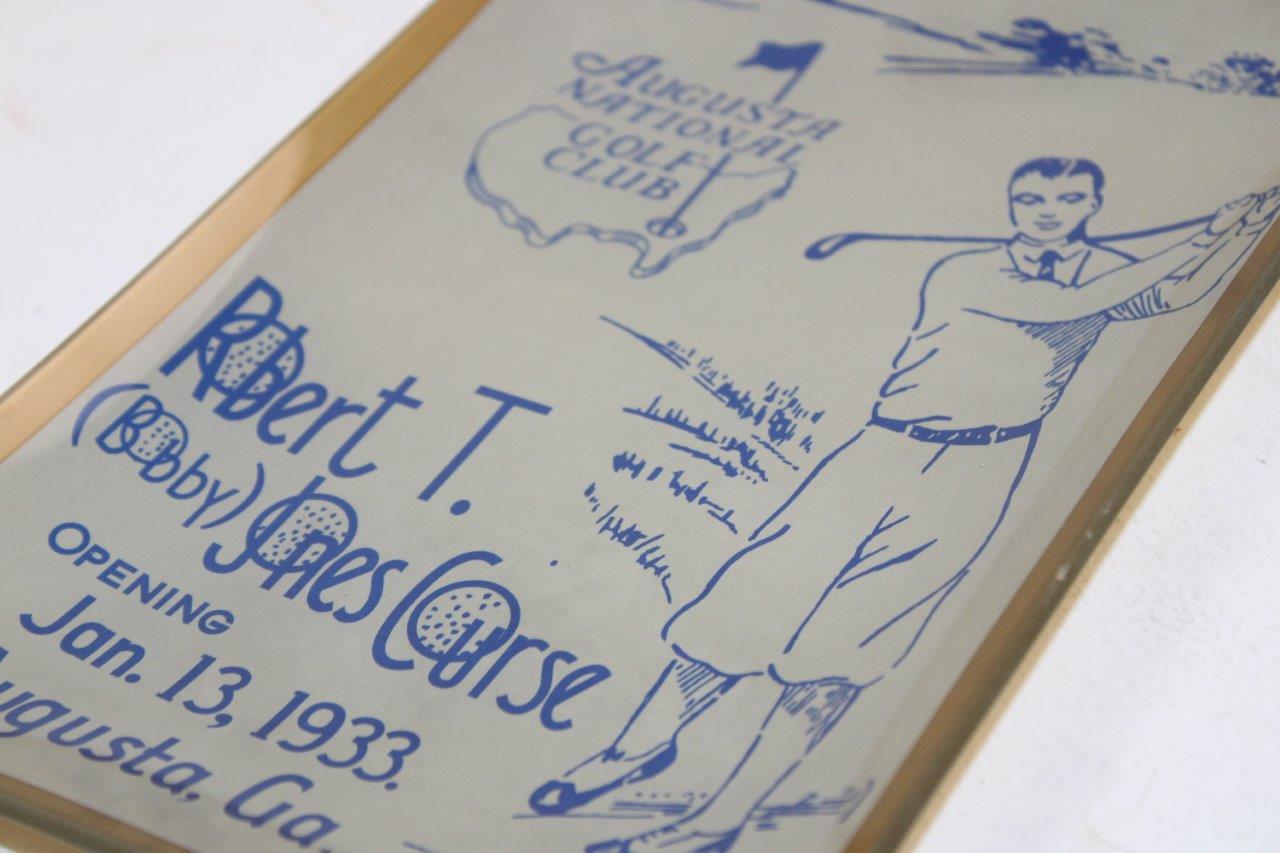 AUGUSTA
NATIONAL
GOLF
CLUB
Robert T.
(Bobby) Jones Course
OPENING
Jan. 13, 1933.
Augusta, Ga.